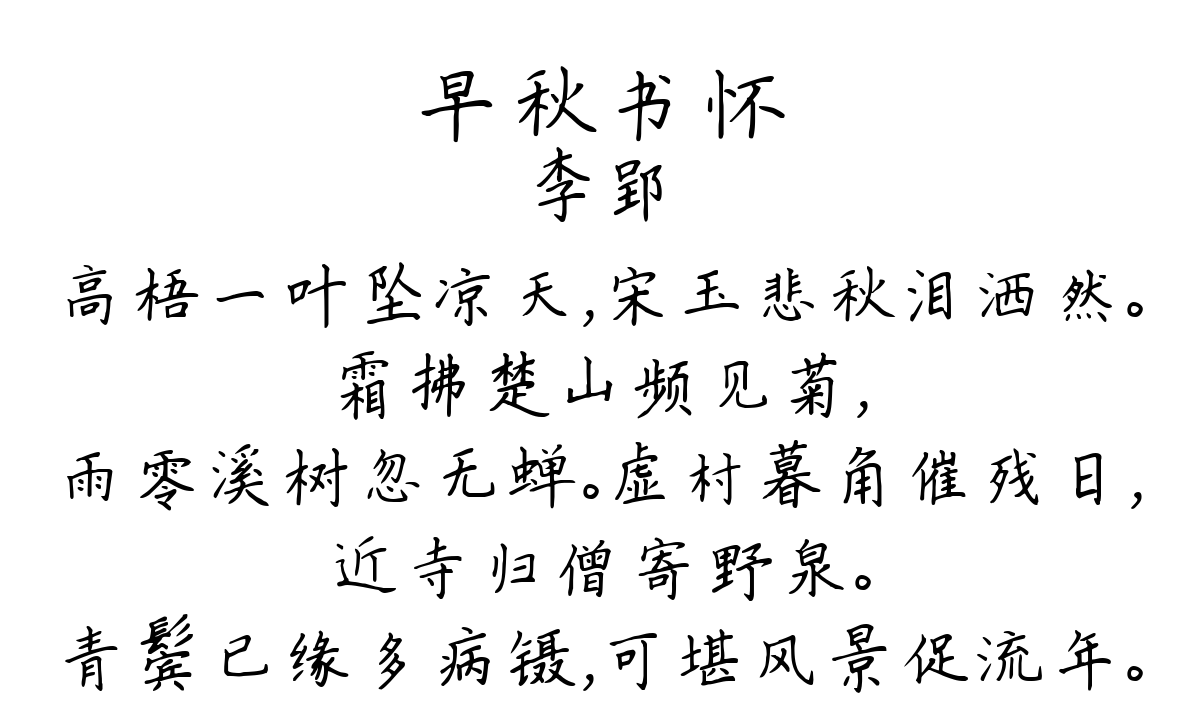 早秋书怀
李郢
高梧一叶坠凉天,宋玉悲秋泪洒然。
霜拂楚山频见菊,
雨零溪树忽无蝉。虚村暮角催残日,
近寺归僧寄野泉。
青鬓已缘多病镊,可堪风景促流年。